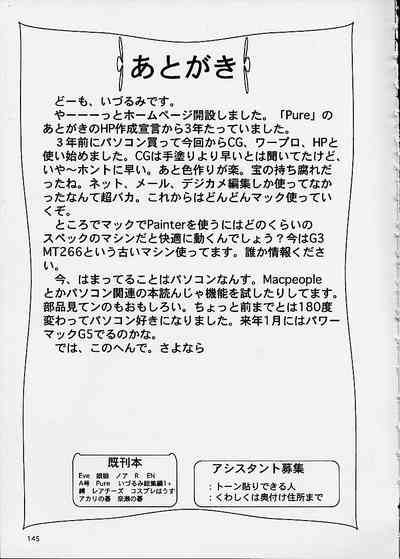 あとがき
どーも、いづるみです。
やーーーっとホームページ開設しました。「Pure」の
あとがきのHP作成宣言から3年たっていました。
3年前にパソコン買って今回からCG、ワープロ、HPと
使い始めました。CGは手塗りより早いとは聞いてたけど、
いや〜ホントに早い。あと色作りが楽。宝の持ち腐れだ
ったね。ネット、メール、デジカメ編集しか使ってなか
ったなんて超バカ。これからはどんどんマック使ってい
くぞ。
ところでマックでPainterを使うにはどのくらいの
スペックのマシンだと快適に動くんでしょう?今はG3
MT266という古いマシン使ってます。誰か情報くださ
い。
今、はまってることはパソコンなんす。Macpeople
とかパソコン関連の本読んじゃ機能を試したりしてます。
部品見てンのもおもしろい。ちょっと前までとは180度
変わってパソコン好きになりました。来年1月にはパワー
マックG5でるのかな。
では、このへんで。さよなら
既刊本
Eve 娘娘 ノア R. EN
A号 Pure いづるみ総集編1+
縛 レアチーズ コスプレはうす
アカリの碁 奈瀬の碁
アシスタント募集
:トーン貼りできる人
:くわしくは奥付け住所まで
145